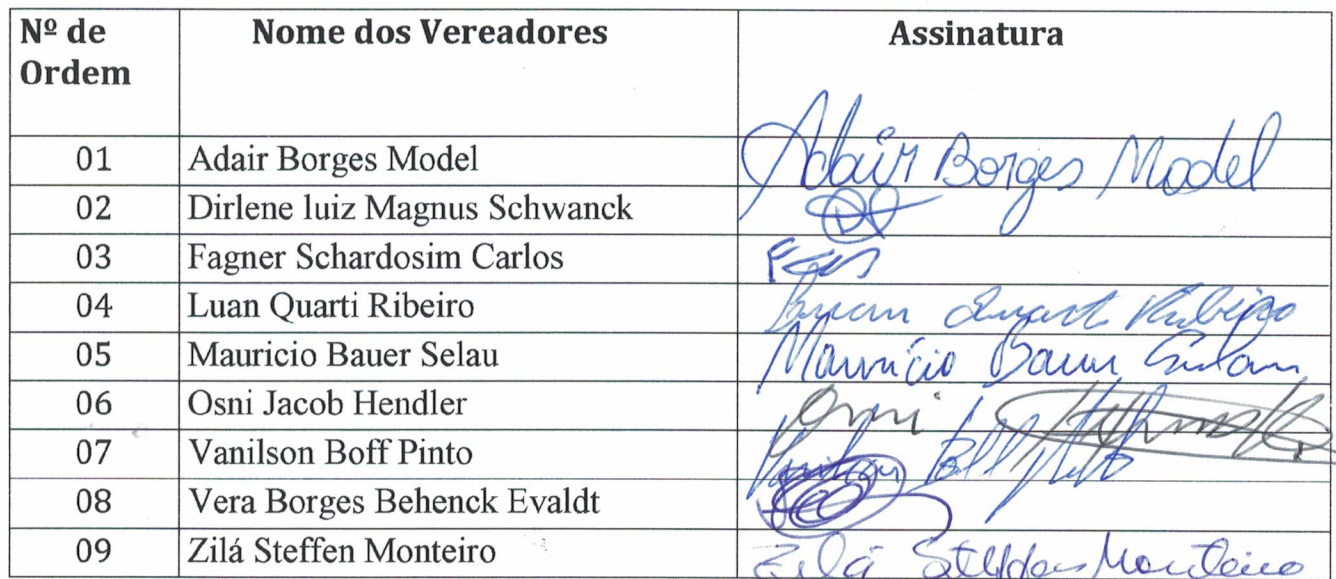 Nº de Ordem Nome dos Vereadores Assinatura
01 Adair Borges Model Adair Borges Model
02 Dirlene luiz Magnus Schwanck
03 Fagner Schardosim Carlos
04 Luan Quarti Ribeiro Ribeiro
05 Mauricio Bauer Selau Mauricio Bauer Selau
06 Osni Jacob Hendler Osni
07 Vanilson Boff Pinto Vanilson Boff Pinto
08 Vera Borges Behenck Evaldt
09 Zilá Steffen Monteiro Zilá Steffen Monteiro